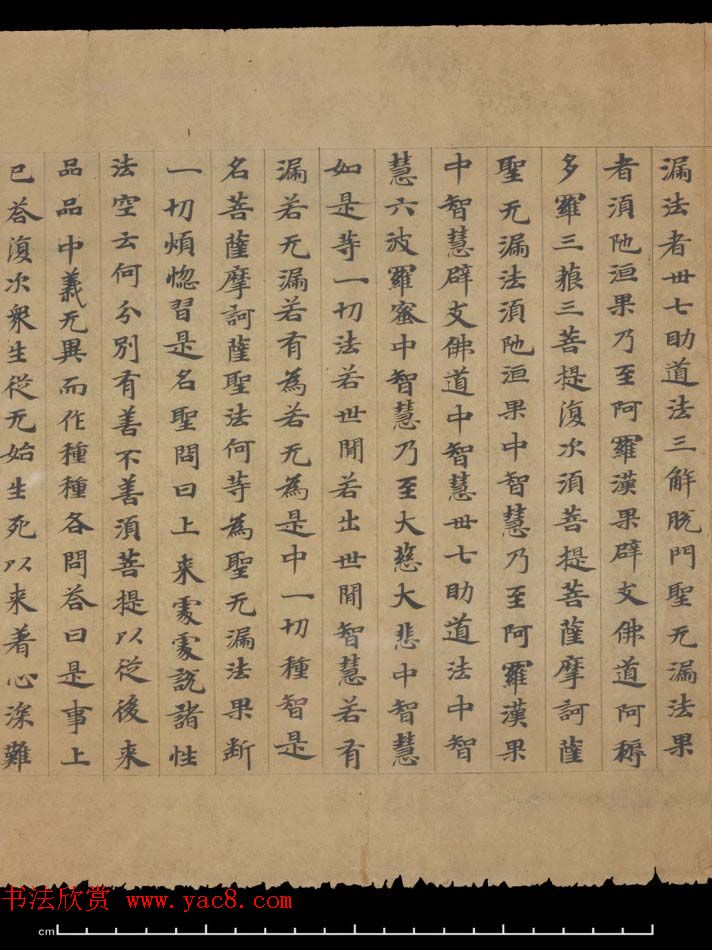 漏法者卅七助道法三解脫門聖无漏法果
者湏陁洹果乃至阿羅漢果辟支佛道阿耨
多羅三藐三菩提復次湏菩提菩薩摩訶薩
聖无漏法湏陁洹果中智慧乃至阿羅漢果
中智慧辟支佛道中智慧卅七助道法中智
慧六波羅蜜中智慧乃至大慈大悲中智慧
如是等一切法若世間若出世間智慧若有
漏若无漏若有為若无為是中一切種智是
名菩薩摩訶薩聖法何等為聖无漏法果断
一切煩惚習是名聖問曰上来處處說諸性
法空云何分別有善不善湏菩提以從後来
品品中義无異而作種種各問荅曰是事上
已荅復次衆生從无始生死以来著心深難
书法欣赏 www.yac8.com
cm